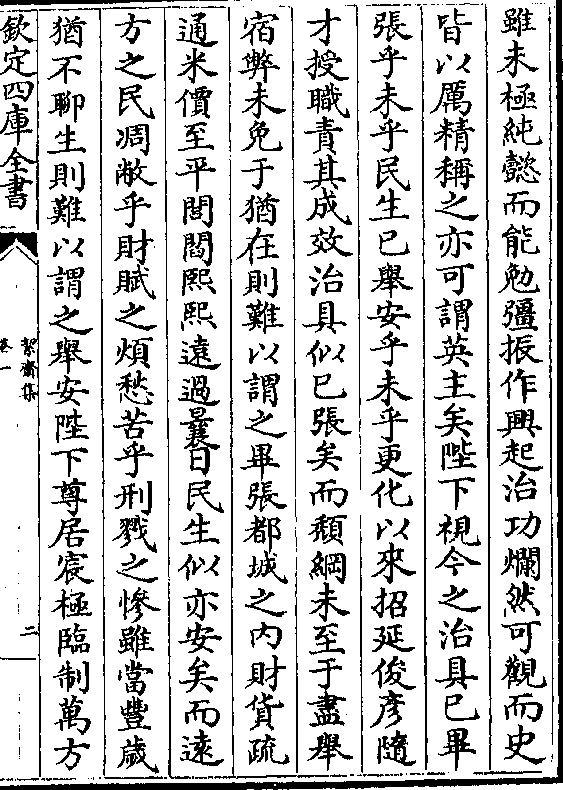 雖未極純懿而能勉彊振作興起治功爛然可觀而史
皆以厲精稱之亦可謂英主矣陛下視今之治具已畢
張乎未乎民生已舉安乎未乎更化以來招延俊彦隨
才授職責其成效治具似已張矣而頽綱未至于盡舉
宿弊未免于猶在則難以謂之畢張都城之内財貨疏
通米價至平閭閻熙熙遠過曩日民生似亦安矣而逺
方之民凋敝乎財賦之煩愁苦乎刑戮之慘雖當豐歳
猶不聊生則難以謂之舉安陛下尊居宸極臨制萬方
欽定四庫全書
絜齋集
卷一
二